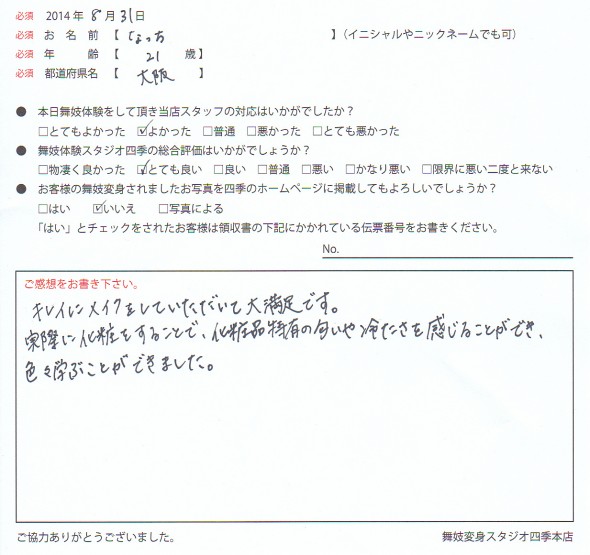 必須 2014年 8月 31日
必須 お 名 前 【 なっち 】(イニシャルやニックネームでも可)
必須 年 齢 【 21 歳】
必須 都道府県名 【 大阪 】
● 本日舞妓体験をして頂き当店スタッフの対応はいかがでしたか?
□とてもよかった ☑よかった □普通 □悪かった □とても悪かった
● 舞妓体験スタジオ四季の総合評価はいかがでしょうか?
□物凄く良かった ☑とても良い □良い □普通 □悪い □かなり悪い □限界に悪い二度と来ない
● お客様の舞妓変身されましたお写真を四季のホームページに掲載してもよろしいでしょうか?
□はい ☑いいえ □写真による
「はい」とチェックをされたお客様は領収書の下記にかかれている伝票番号をお書きください。
No.
ご感想をお書き下さい。
キレイにメイクをしていただいて大満足です。
実際に化粧をすることで、化粧品特有の匂いや冷たさを感じることができ、
色々学ぶことができました。
ご協力ありがとうございました。 舞妓変身スタジオ四季本店